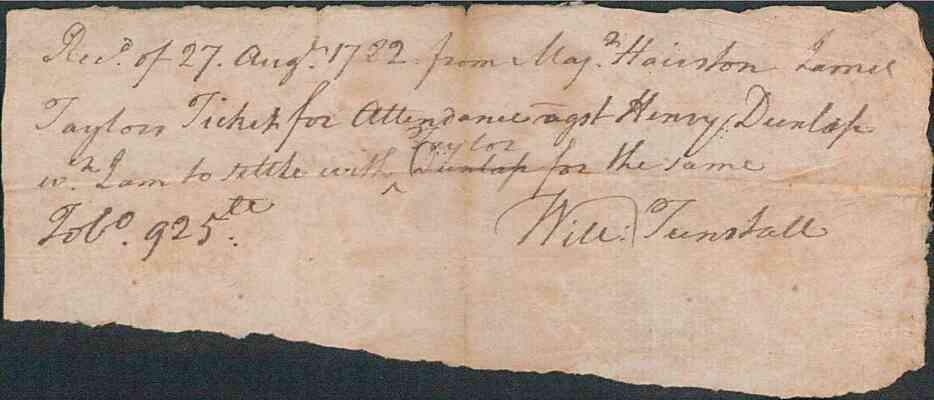 Recd. of 27. Augt. 1782 from Majr. Hairston James
Taylors Ticket for Attendance agst Henry Dunlap
wh. I am to settle with ^ Taylor Dunlap for the same
Tobo. 925 lb.
Will: Tunstall